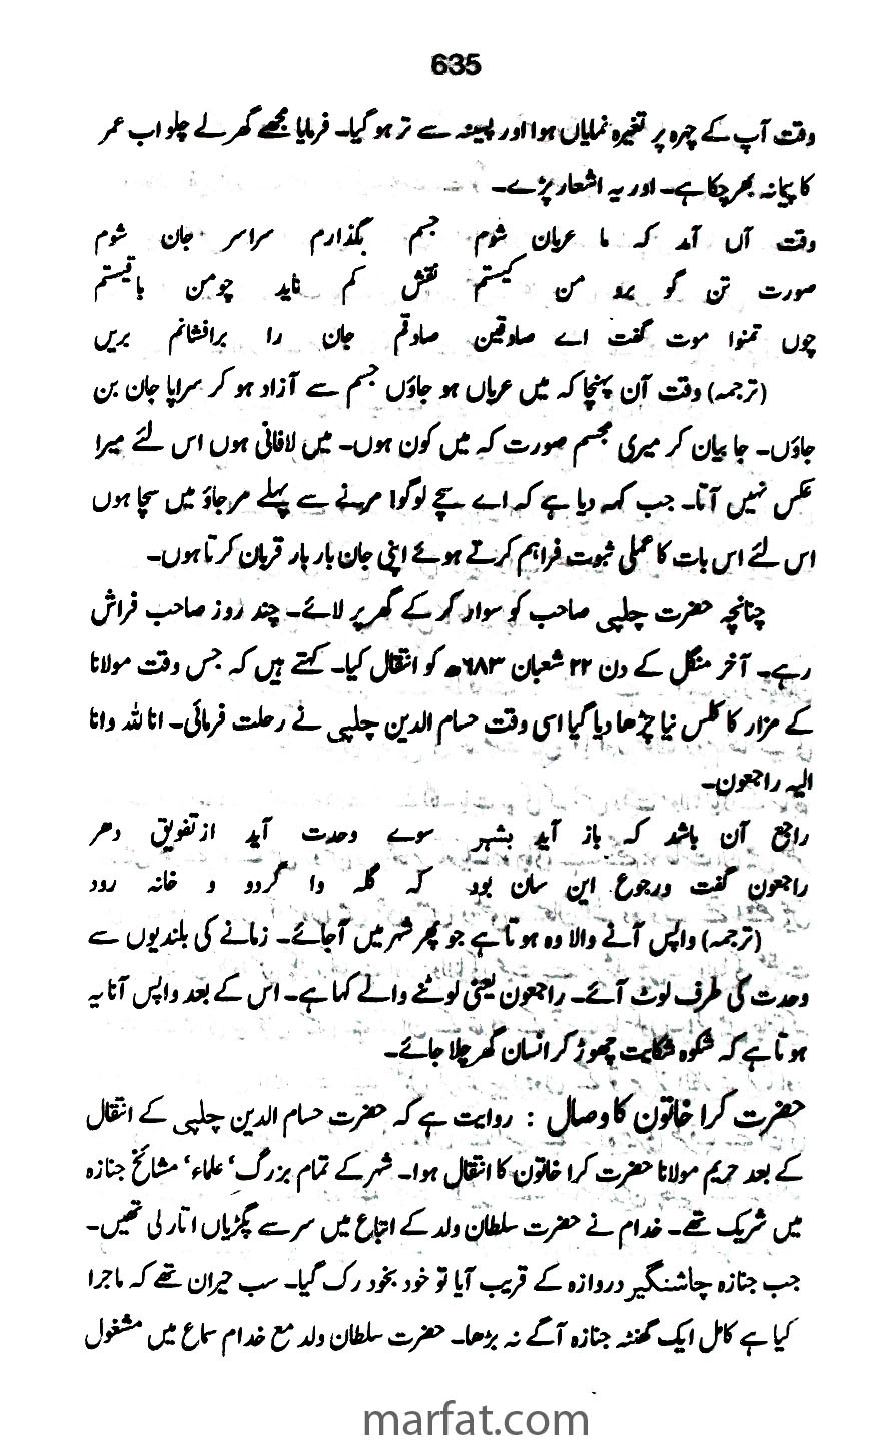 635
وقت آپ کے چہرہ پر تغیرہ نمایاں ہوا اور پسینہ سے تر ہو گیا۔ فرمایا مجھے گھر لے چلو اب عمر
کا پیمانہ بھر چکا ہے۔ اور یہ اشعار پڑے۔
وقت آں آمد کہ ما عریان شوم جسم بگذارم سراسر جان شوم
صورت تن گو برو من کیستم نقش کم ناید چومن باقیستم
چوں تمنوا موت گفت اے صادقین صادقم جان را برافشانم بریں
(ترجمہ) وقت آن پہنچا کہ میں عریاں ہو جاؤں جسم سے آزاد ہو کر سراپا جان بن
جاؤں۔ جا بیان کر میری مجسم صورت کہ میں کون ہوں۔ میں لافانی ہوں اس لئے میرا
عکس نہیں آتا۔ جب کہہ دیا ہے کہ اے سچے لوگو! مرنے سے پہلے مرجاؤ میں سچا ہوں
اس لئے اس بات کا عملی ثبوت فراہم کرتے ہوئے اپنی جان بار بار قربان کرتا ہوں۔
چنانچہ حضرت چلپی صاحب کو سوار کر کے گھر پر لائے۔ چند روز صاحب فراش
رہے۔ آخر منگل کے دن ۲۲ شعبان ۶۸۳ھ کو انتقال کیا۔ کہتے ہیں کہ جس وقت مولانا
کے مزار کا کلس نیا چڑھا دیا گیا اسی وقت حسام الدین چلپی نے رحلت فرمائی۔ انا للہ وانا
الیہ راجعون۔
راجع آن باشد کہ باز آید بشہر سوے وحدت آید از تفویق دھر
راجعون گفت ورجوع این سان بود کہ گلہ وا گردو و خانہ رود
(ترجمہ) واپس آنے والا وہ ہوتا ہے جو پھر شہر میں آجائے۔ زمانے کی بلندیوں سے
وحدت کی طرف لوٹ آئے۔ راجعون یعنی لوٹنے والے کہا ہے۔ اس کے بعد واپس آنا یہ
ہوتا ہے کہ شکوہ شکایت چھوڑ کر انسان گھر چلا جائے۔
حضرت کرا خاتون کا وصال : روایت ہے کہ حضرت حسام الدین چلپی کے انتقال
کے بعد حریم مولانا حضرت کرا خاتون کا انتقال ہوا۔ شہر کے تمام بزرگ‘ علماء‘ مشائخ جنازہ
میں شریک تھے۔ خدام نے حضرت سلطان ولد کے اتباع میں سر سے پگڑیاں اتار لی تھیں۔
جب جنازہ چاشنگیر دروازہ کے قریب آیا تو خود بخود رک گیا۔ سب حیران تھے کہ ماجرا
کیا ہے کامل ایک گھنٹہ جنازہ آگے نہ بڑھا۔ حضرت سلطان ولد مع خدام سماع میں مشغول
marfat.com